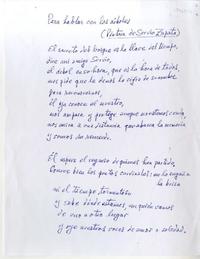 Para hablar con los árboles
(Pintura de Sergio Zapata)
El secreto del bosque es la llave del tiempo,
dice mi amigo Sergio,
el árbol en su hora, que es la hora de todos,
nos pide que le demos la cifra de su nombre
para reconocernos,
Él ya conoce el nuestro,
nos ampara y protege aunque nos vamos
nos mira a una distancia que abarca la memoria
y somos su recuerdo.
Él espera el regreso de quienes han partido,
conoce bien los puntos cardinales: no lo engaña
la brisa
ni el tiempo tormentoso
y sabe dónde estamos, en quién vamos
de uno a otro lugar
y oye nuestras voces de amor o soledad.